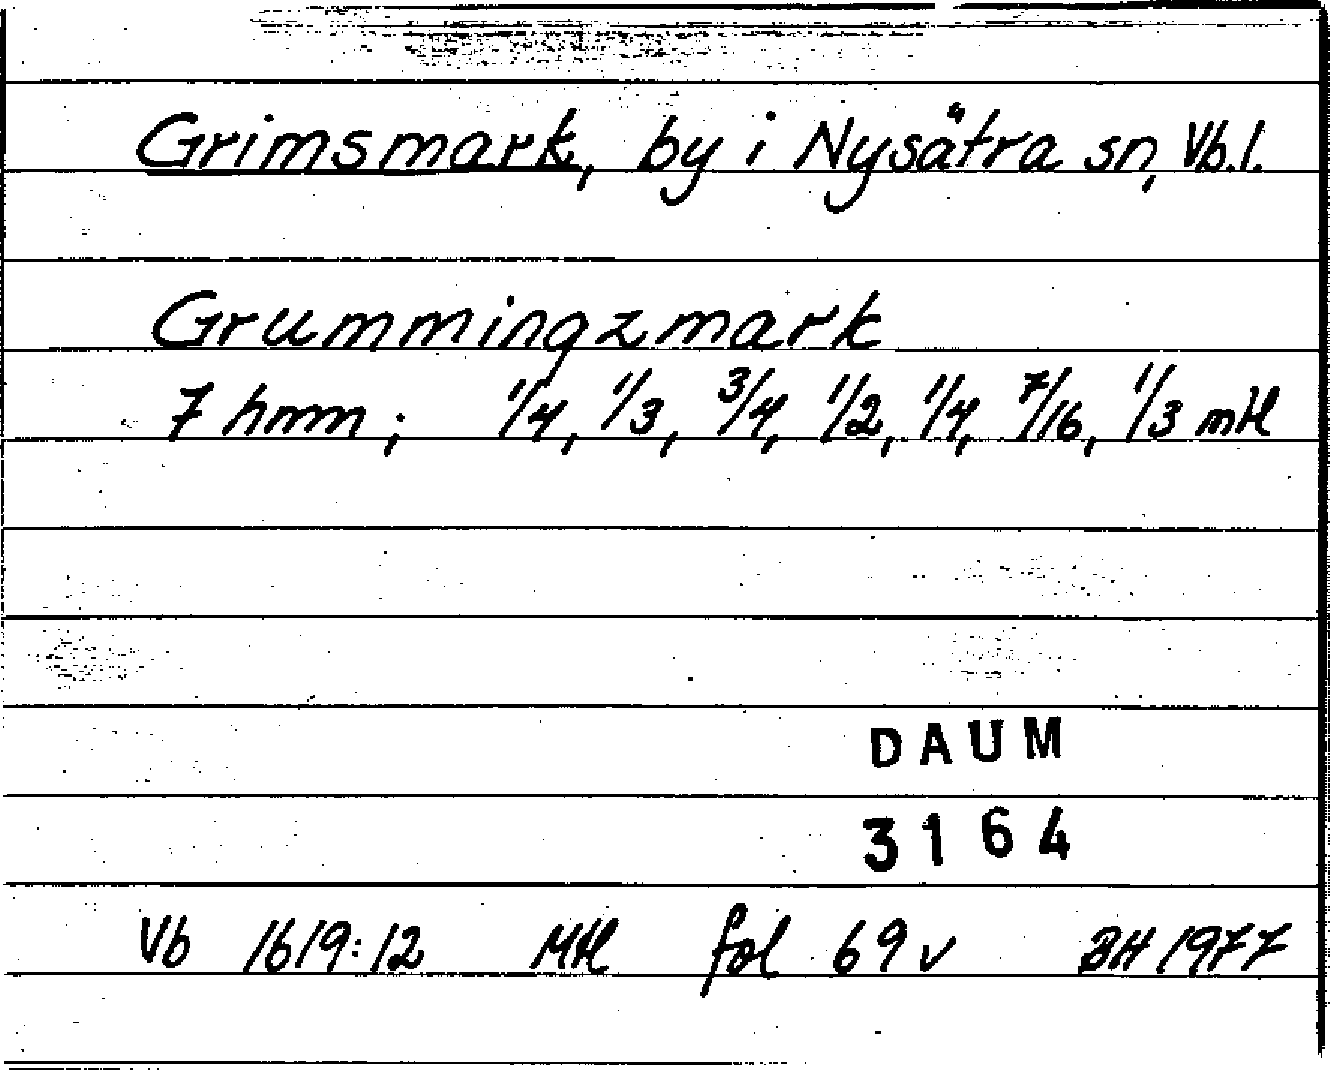 Grimsmark, by i Nysätra sn, Vb.l.
Grummingzmark
7 hmm; 1/4, 1/3, 3/4, 1/2, 1/4, 7/16, 1/3 mtl
DAUM
3164
Vb 1619:12 Mtl fol 69 v BH 1977